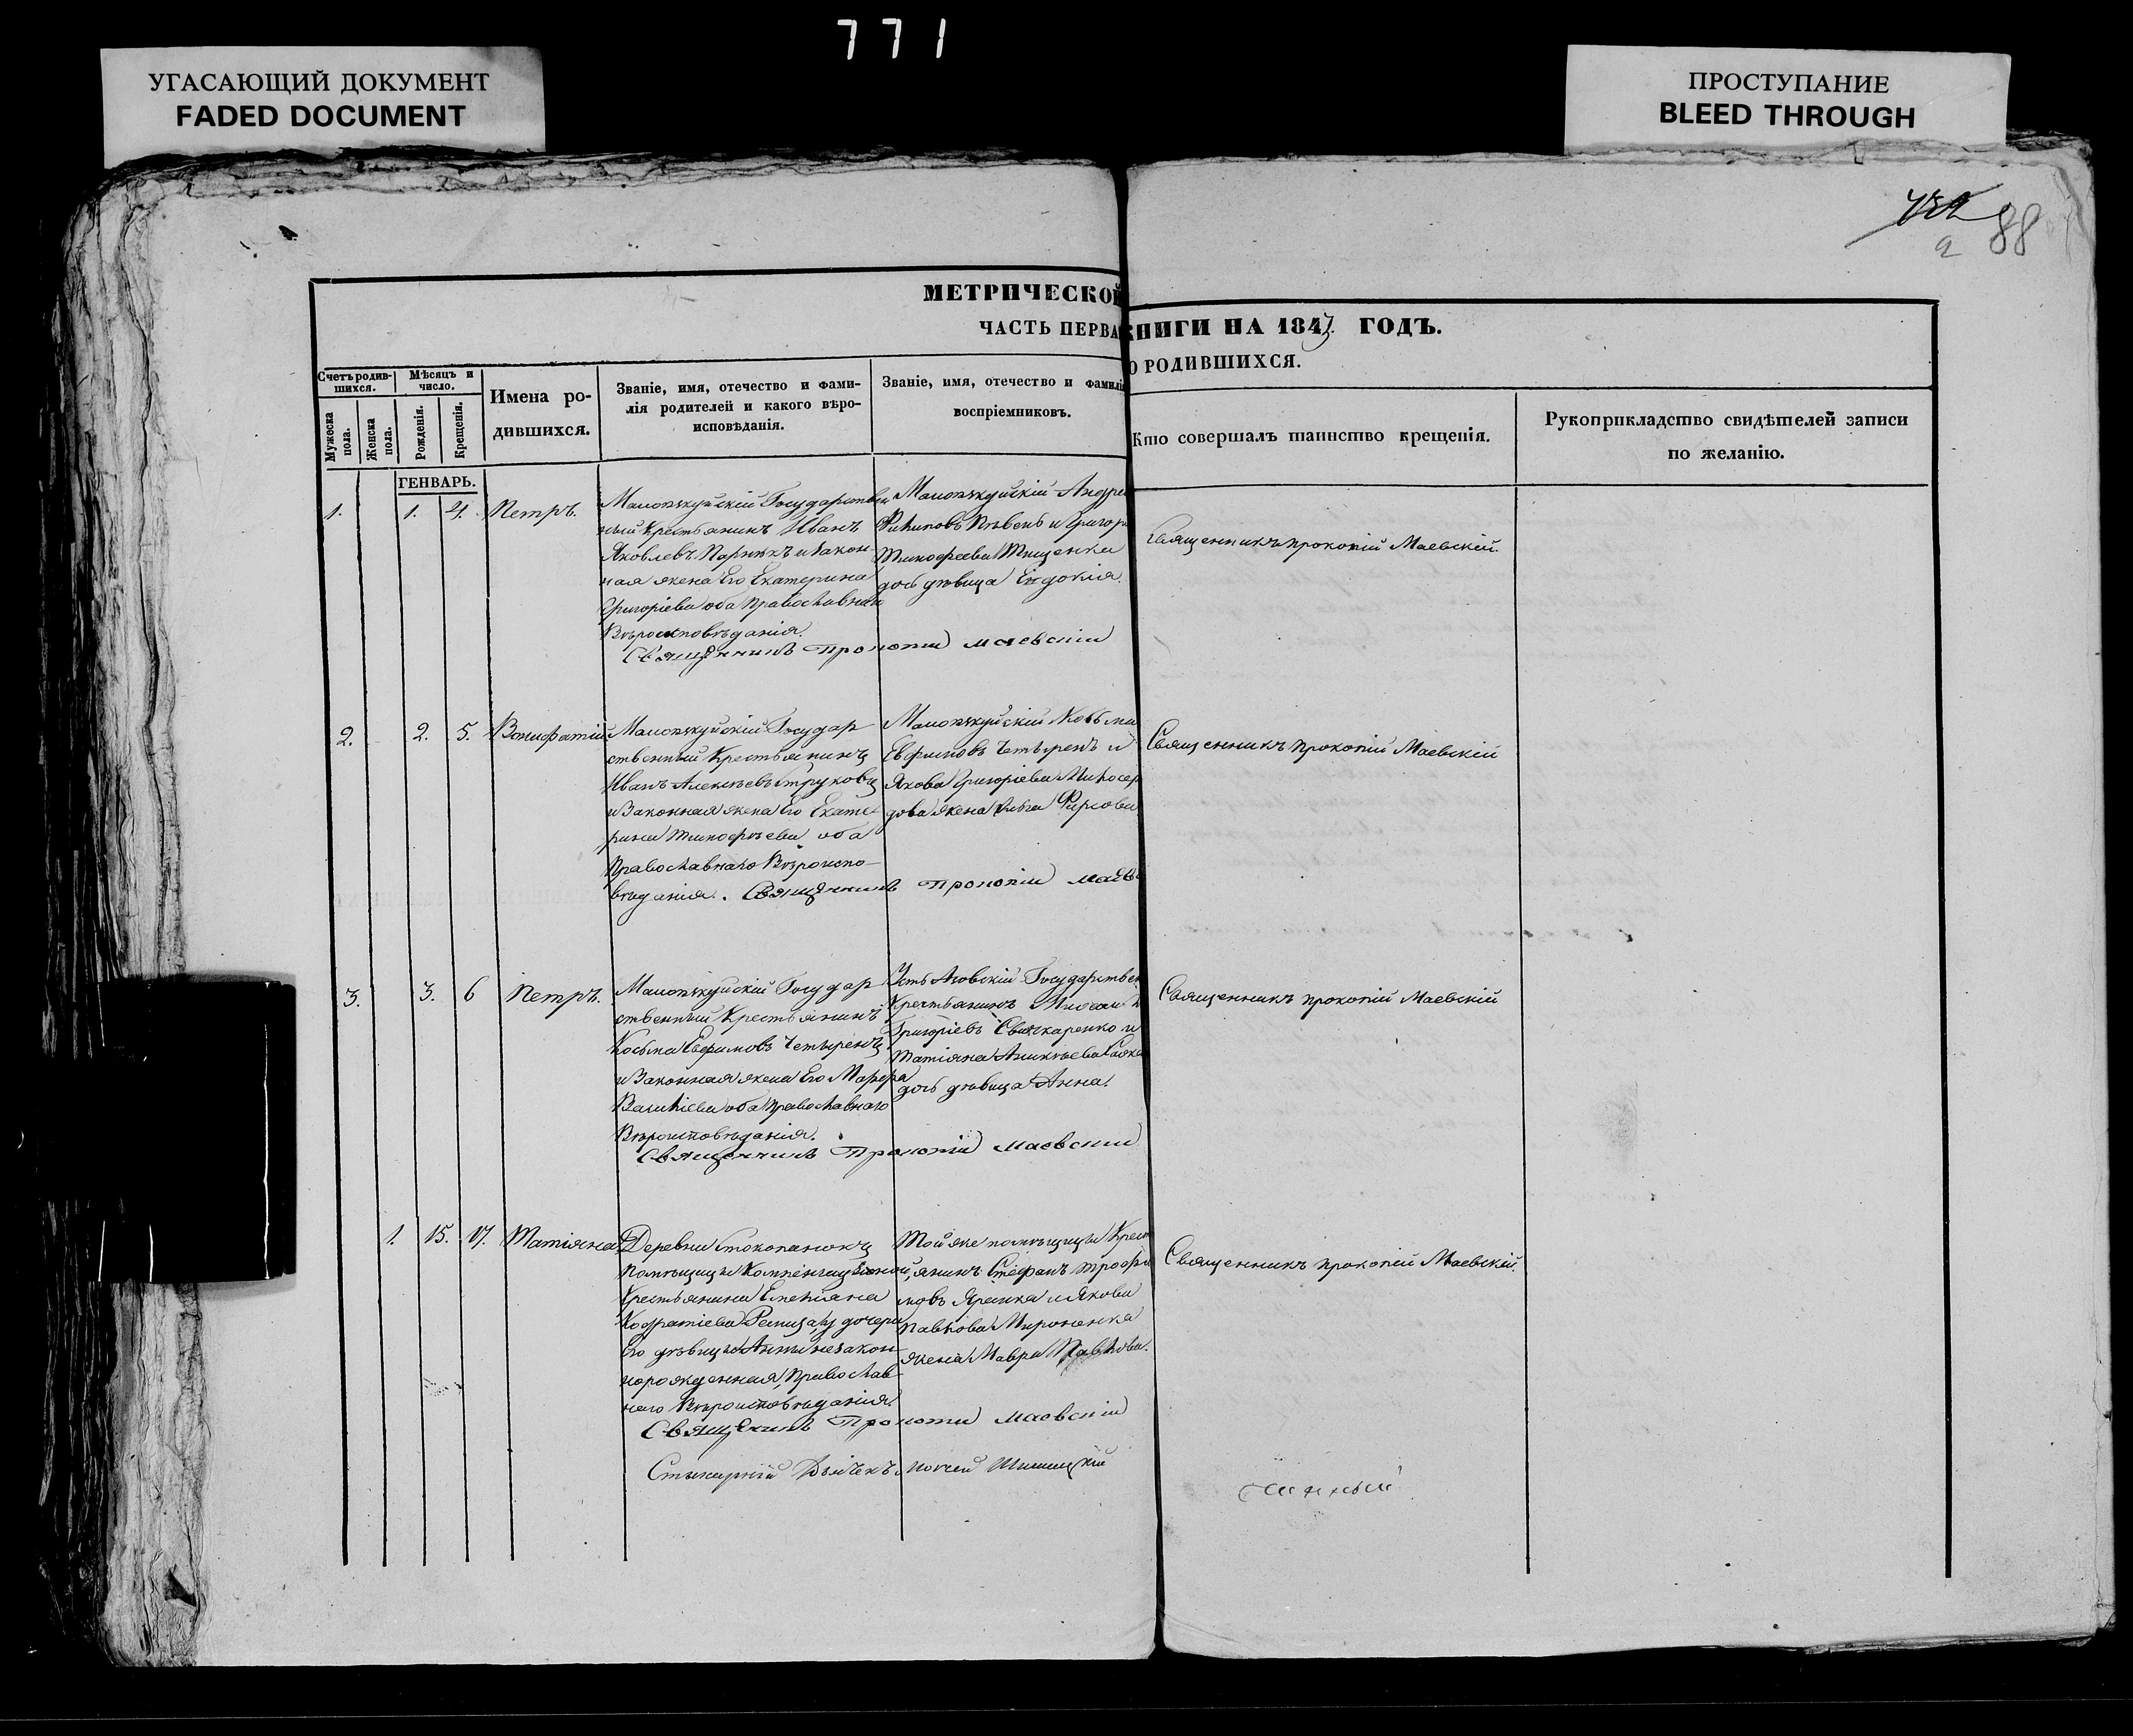 771
УГАСАЮЩИЙ ДОКУМЕНТ
FADED DOCUMENT
ПРОСТУПАНИЕ
BLEED THROUGH
88
МЕТРИЧЕСКОЙ КНИГИ НА 1843. ГОДЪ.
ЧАСТЬ ПЕРВА О РОДИВШИХСЯ.
Счетъ родив-
шихся.
Мѣсяцъ и
число.
Мужеска
пола.
Женска
пола.
Рожденія.
Крещенія.
Имена ро-
дившихся.
Званіе, имя, отечество и фами-
лія родителей и какого вѣро-
исповѣданія.
Званіе, имя, отечество и фамилія
воспріемниковъ.
Кто совершалъ таинство крещенія.
Рукоприкладство свидѣтелей записи
по желанію.
ГЕНВАРЬ.
1.
1.
Петръ.
Государствен
ный Крестьянинъ Иванъ
Яковлевъ и закон
ная жена Его Екатерина
Григоріева оба Православнаго
Вѣроисповѣданія.
Священникъ Прокопій Маевскій
Андрей
Филиповъ и Григорі
Тимофеева Тищенка
дочь дѣвица Евдокія.
Священникъ Прокопій Маевскій.
2.
2.
5.
Вонифатій
Государ
ственный Крестьянинъ
Иванъ Алексѣевъ
и Законная жена Его Екате
рина Тимофѣева оба
Православнаго Вѣроиспо-
вѣданія. Священникъ Прокопій Маев
Козьма
Евфимовъ Четыренъ и
Якова Григоріева Милосер
дова жена Фирсова
Священникъ Прокопій Маевскій
3.
3.
6
Петръ.
Государ
ственный Крестьянинъ
Косьма Евфимовъ Четыренъ
и Законная жена Его Марфа
Василіева оба Православнаго
Вѣроисповѣданія.
Священникъ Прокопій Маевскій
Государствен
Крестьянинъ
Григоріевъ и
Татіяна
дочь дѣвица Анна.
Священникъ Прокопій Маевскій
1.
15.
17.
Татіяна
Деревни
Помѣщицы
Крестьянина Емеліяна
дочери
Его дѣвицы Анны незакон
норожденная, Православ
наго Вѣроисповѣданія.
Священникъ Прокопій Маевскій
Той же помѣщицы Крест
янинъ Стефанъ Трофи
мовъ и Якова
Павлова Мироненка
жена Мавра Павлова.
Священникъ Прокопій Маевскій.